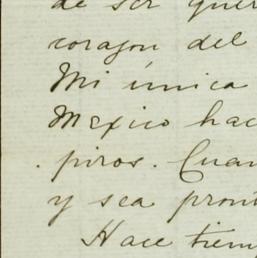 de ser quer
corazon del
Mi única
Mexico hac
piros. Cuan
y sea pront
Hace tiemp